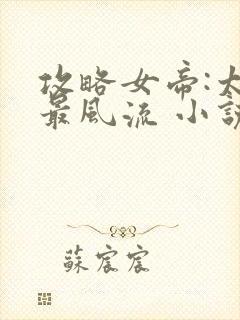 攻略女帝:
最風流 小
蘇宸宸